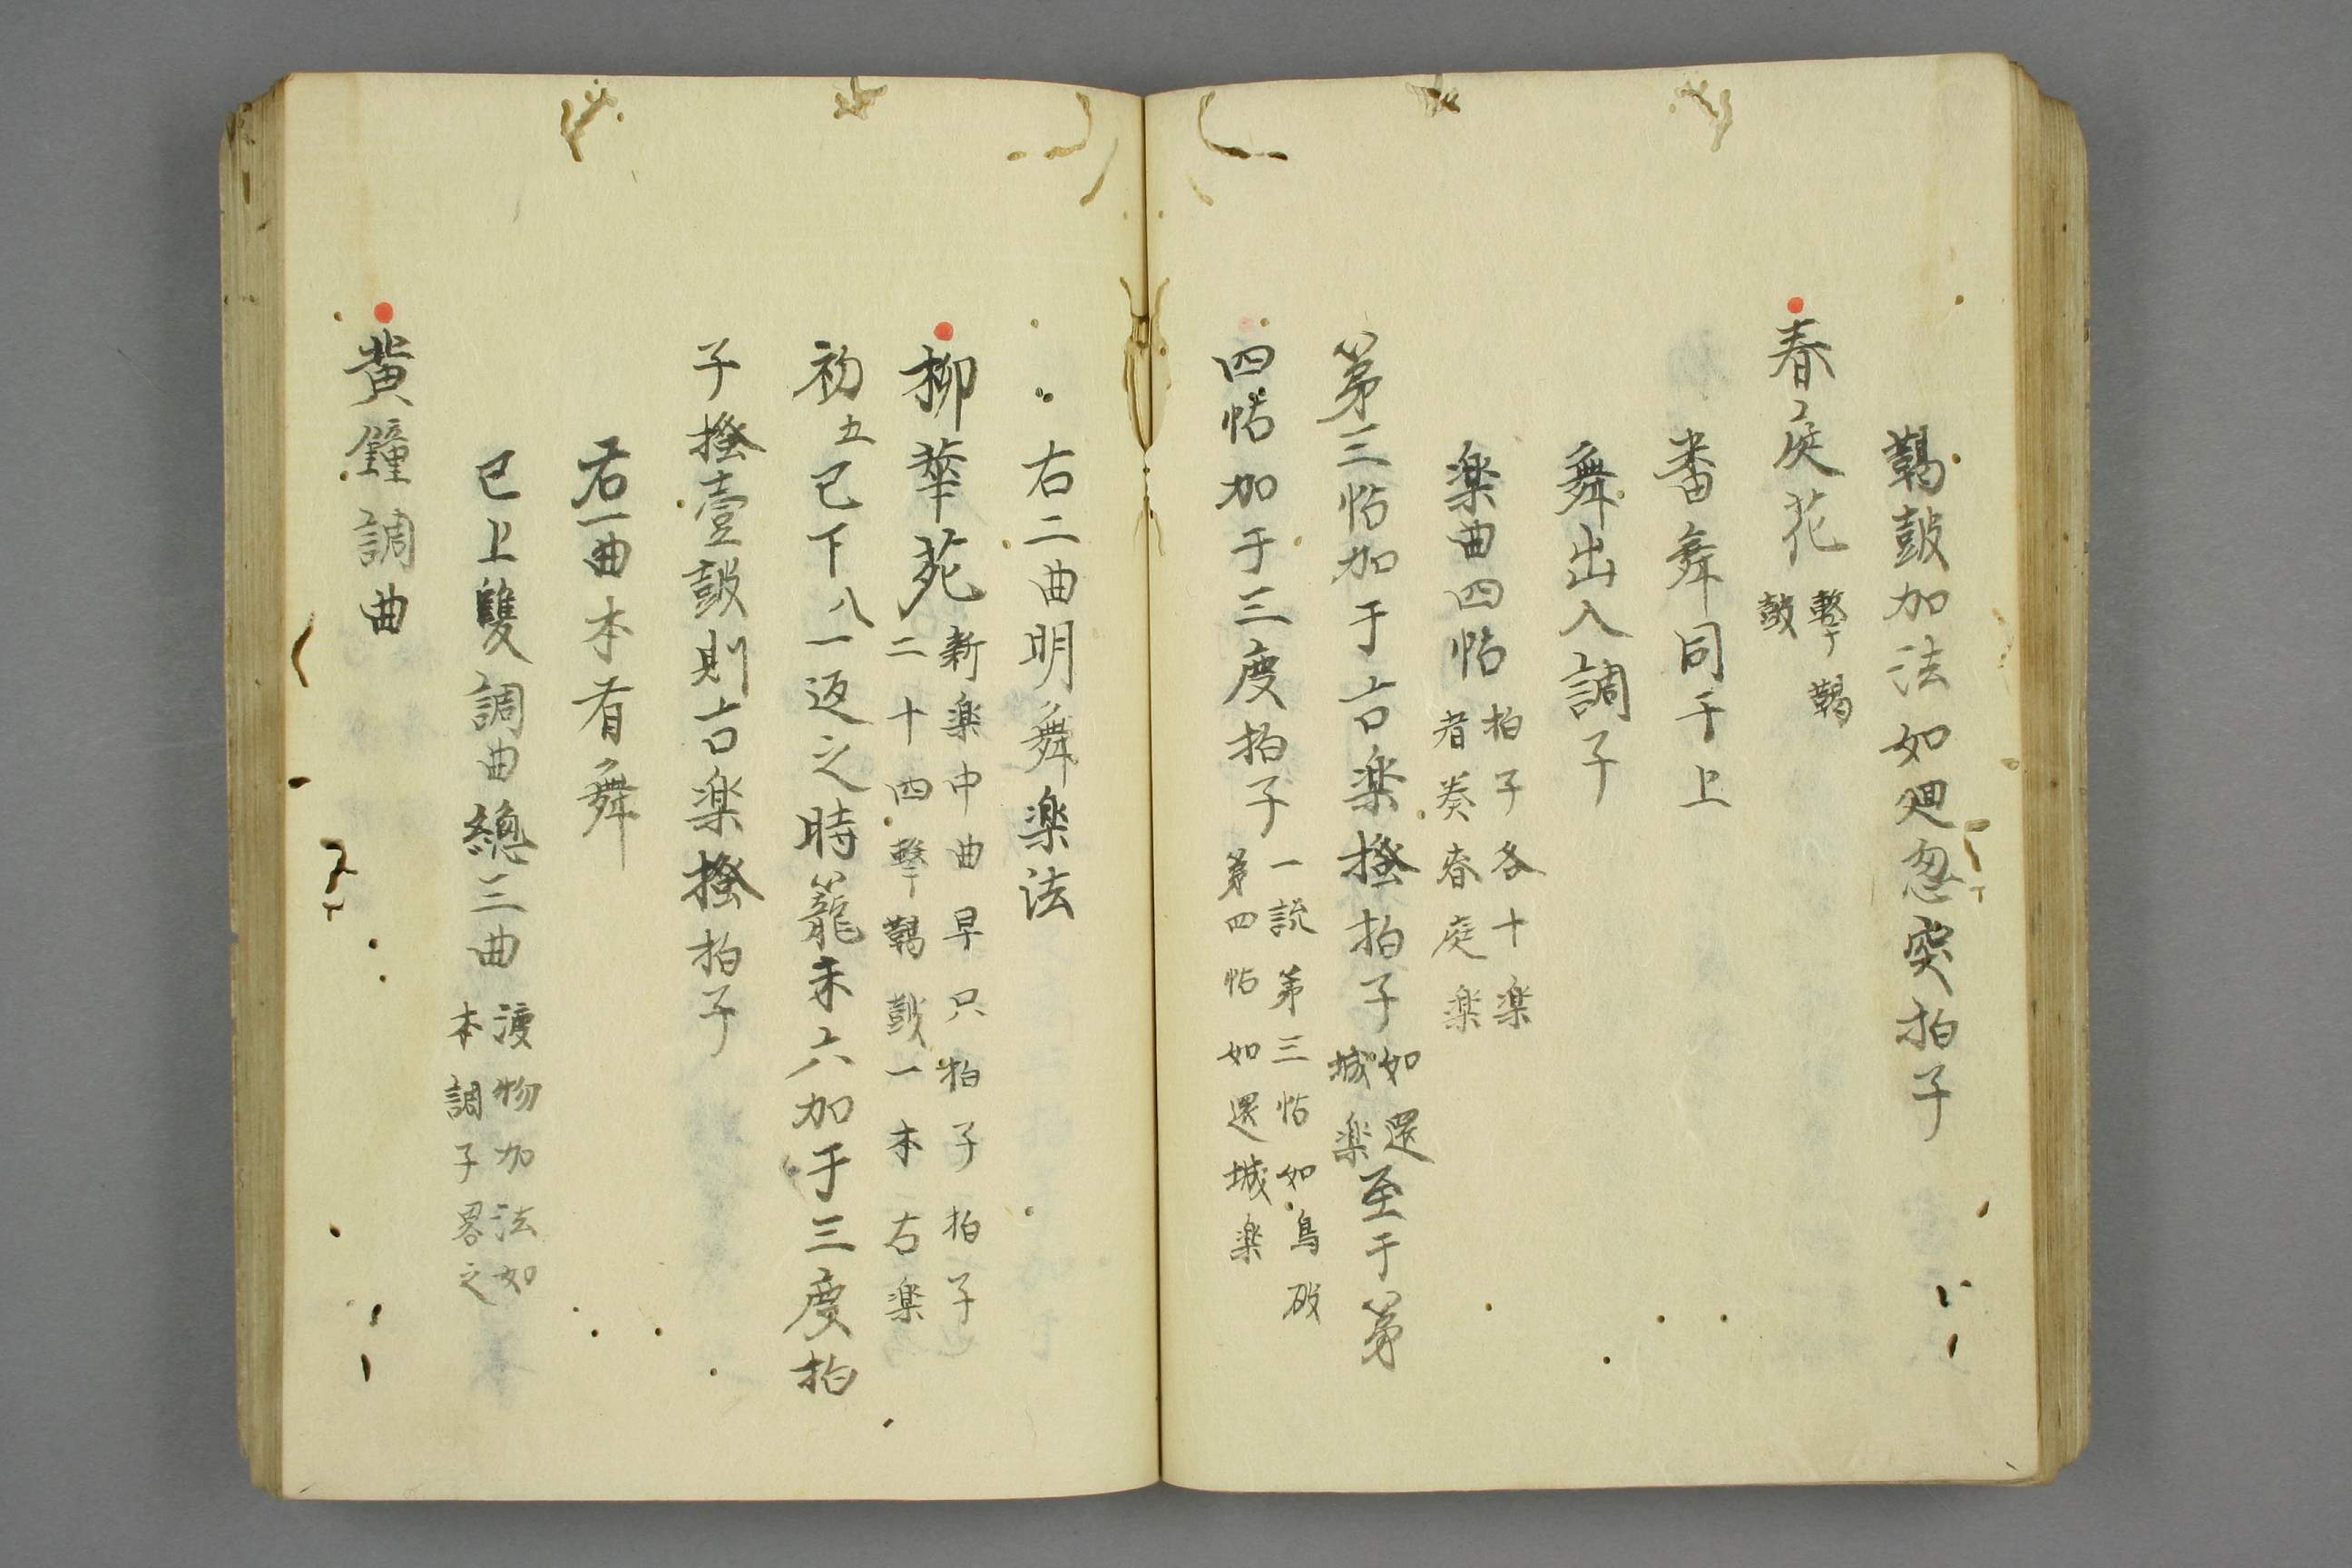 鞨鼓加法如廻忽突拍子
春庭花 撃鞨
鼓
番舞同于上
舞出入調子
楽曲四帖 拍子各十楽
者奏春庭楽
第三帖加于古楽揆拍子 如還
城楽 至于第
四帖加于三度拍子 一説第三帖如鳥破
第四帖如還城楽
右二曲明舞楽法
柳華苑 新楽中曲早只拍子拍子
二十四撃鞨鼓一本右楽
初五已下八一返之時籠未六加于三度拍
子揆壹鼓則古楽揆拍子
右一曲本有舞
已上雙調曲総三曲 渡物加法如
本調子畧之
黄鐘調曲